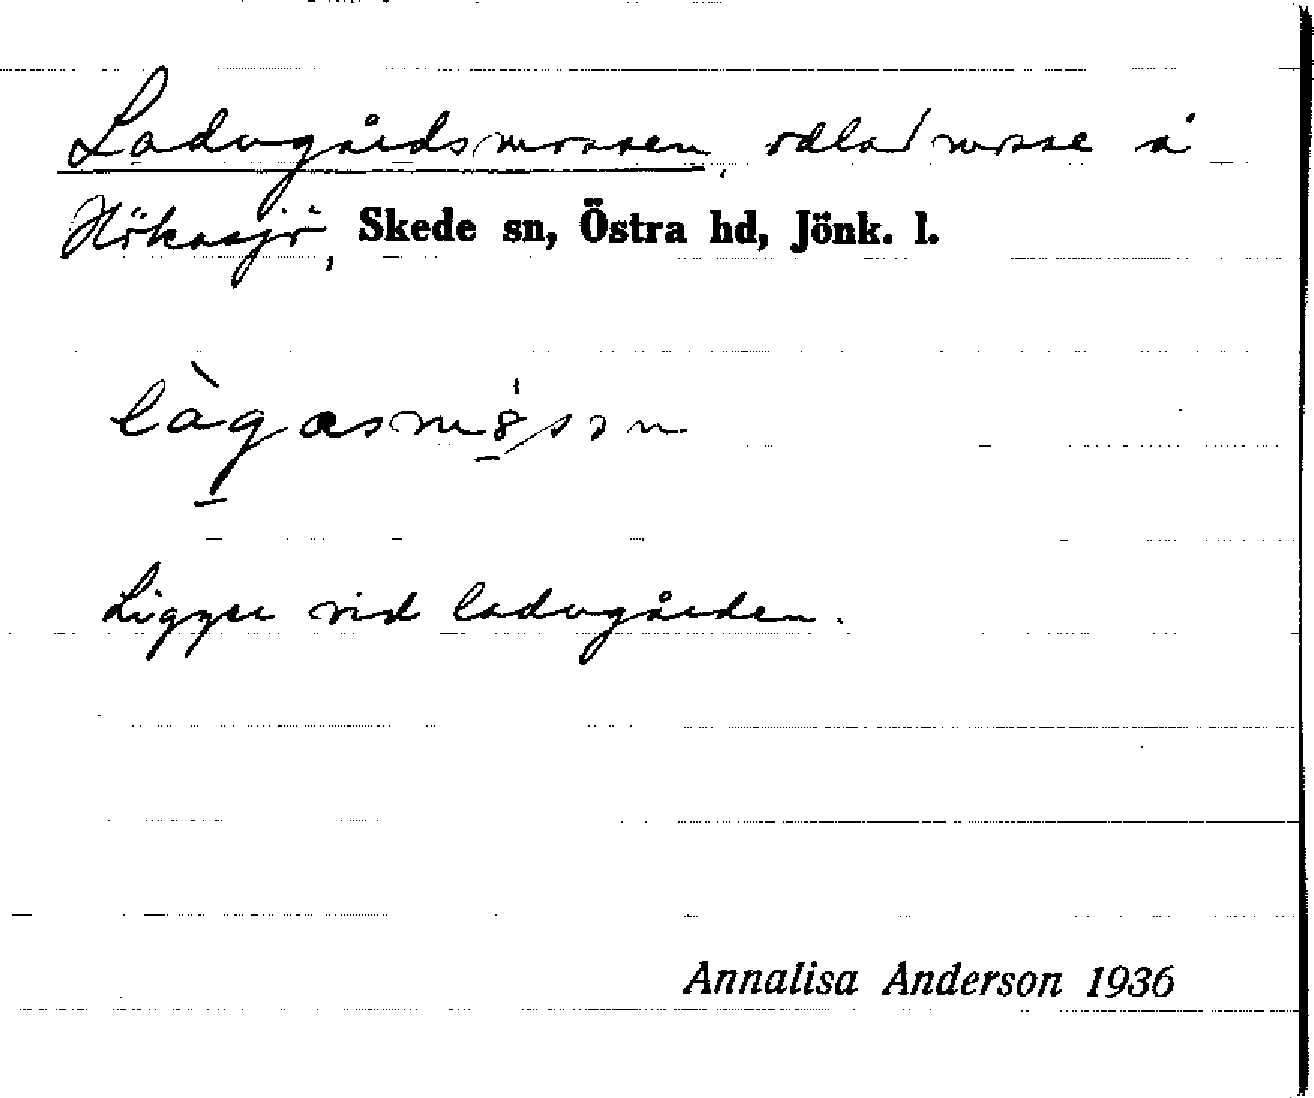 Ladugårdsmossen, odlad mosse å
Hökasjö, Skede sn, Östra hd, Jönk. l.
làgasmossn
Ligger vid ladugården.
Annalisa Anderson 1936